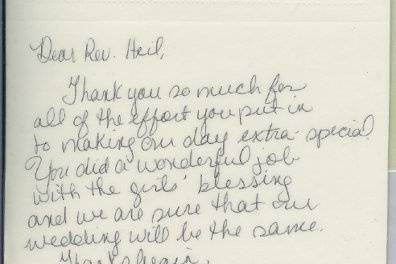 Dear Rev. Heil,
Thank you so much for
all of the effort you put in
to making our day extra-special.
You did a wonderful job
with the girls' blessing
and we are sure that our
wedding will be the same.
Thanks again,